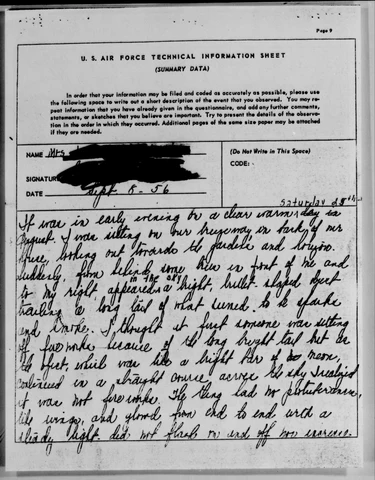 Page 9
U. S. AIR FORCE TECHNICAL INFORMATION SHEET
(SUMMARY DATA)
In order that your information may be filed and coded as accurately as possible, please use
the following space to write out a short description of the event that you observed. You may re-
peat information that you have already given in the questionnaire, and add any further comments,
statements, or sketches that you believe are important. Try to present the details of the observa-
tion in the order in which they occurred. Additional pages of the same size paper may be attached
if they are needed.
NAME Mrs
(Do Not Write in This Space)
CODE:
SIGNATURE
DATE Sept 8 - 56
Saturday 25th
It was in early evening on a clear warm day in
August. I was sitting on our breezeway in back of our
house, looking out towards the garden and
Suddenly, from behind some trees in front of me and
to my right, appeared in the sky a bright, bullet-shaped object
trailing a long tail of what seemed to be sparks
and smoke. I thought at first someone was setting
off fireworks because of the long bright tail but as
the object, which was like a bright bar of neon,
continued in a straight course across the sky I realized
it was not fireworks. The thing had no protuberances,
like wings, and glowed from end to end with a
steady light, did not flash on and off nor increase